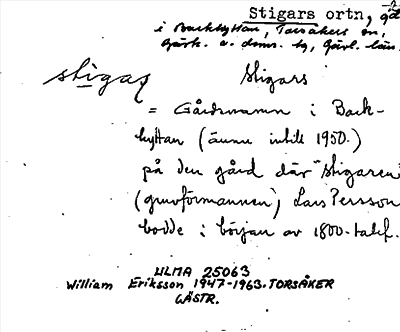 Stigars ortn,
i Backhyttan, Torsåkers sn,
Gästr. o. doms. by, Gävl. län
stigaș Stigars
= Gårdsnamn i Back-
hyttan (ännu intill 1950.)
på den gård där "Stigaren"
(gruvförmannen) Lars Persson
bodde i början av 1800-talet.
ULMA 25063
William Eriksson 1947-1963. TORSÅKER
GÄSTR.